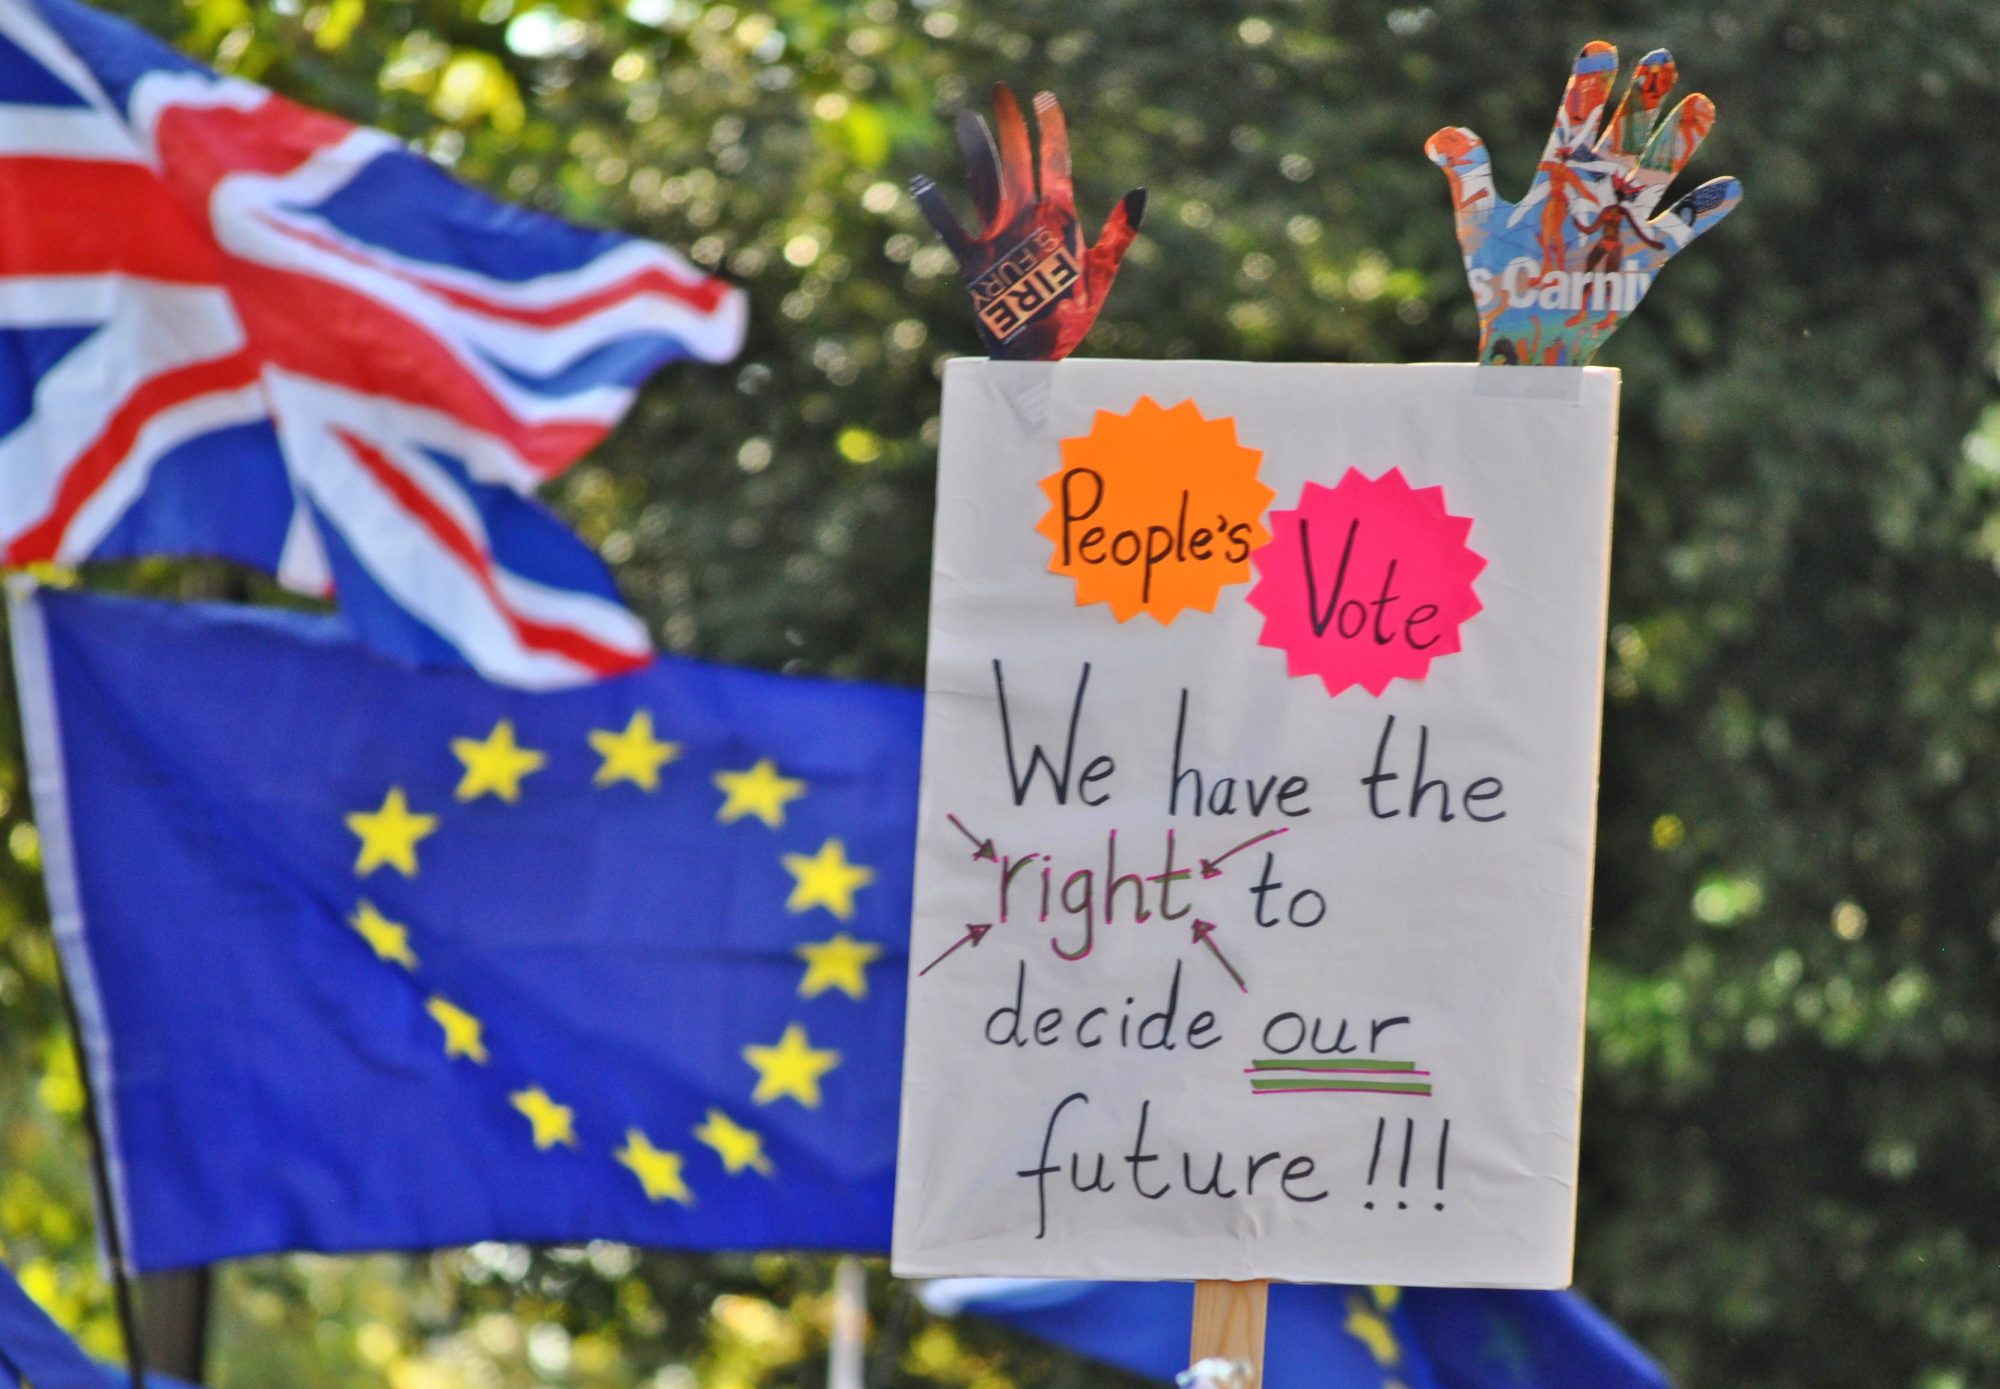 FIRE
& FURY
s Carni
People's
Vote
We have the
right to
decide our
future !!!